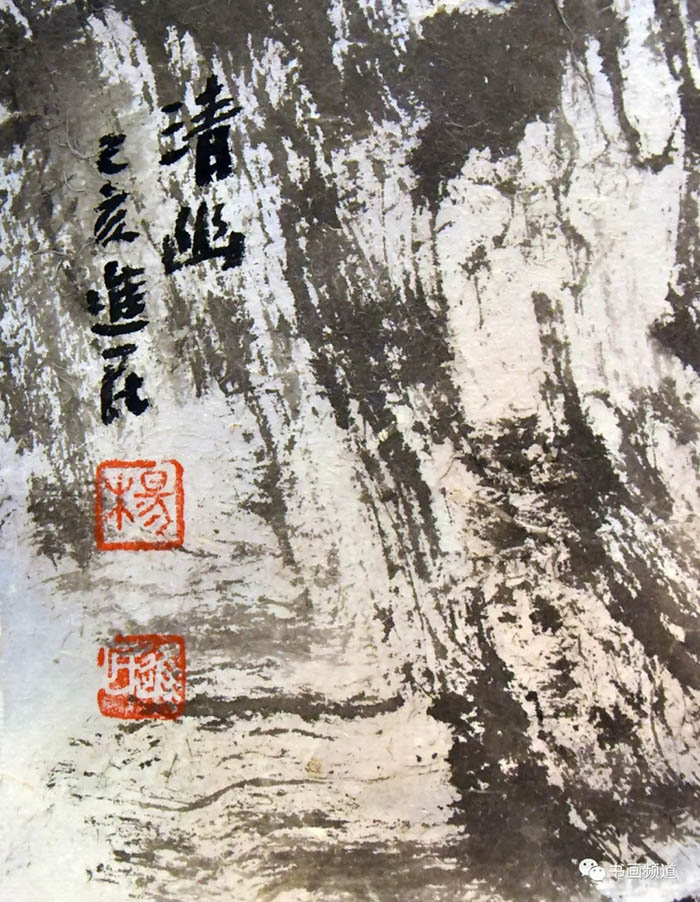 清幽
己亥進民
楊
书画频道